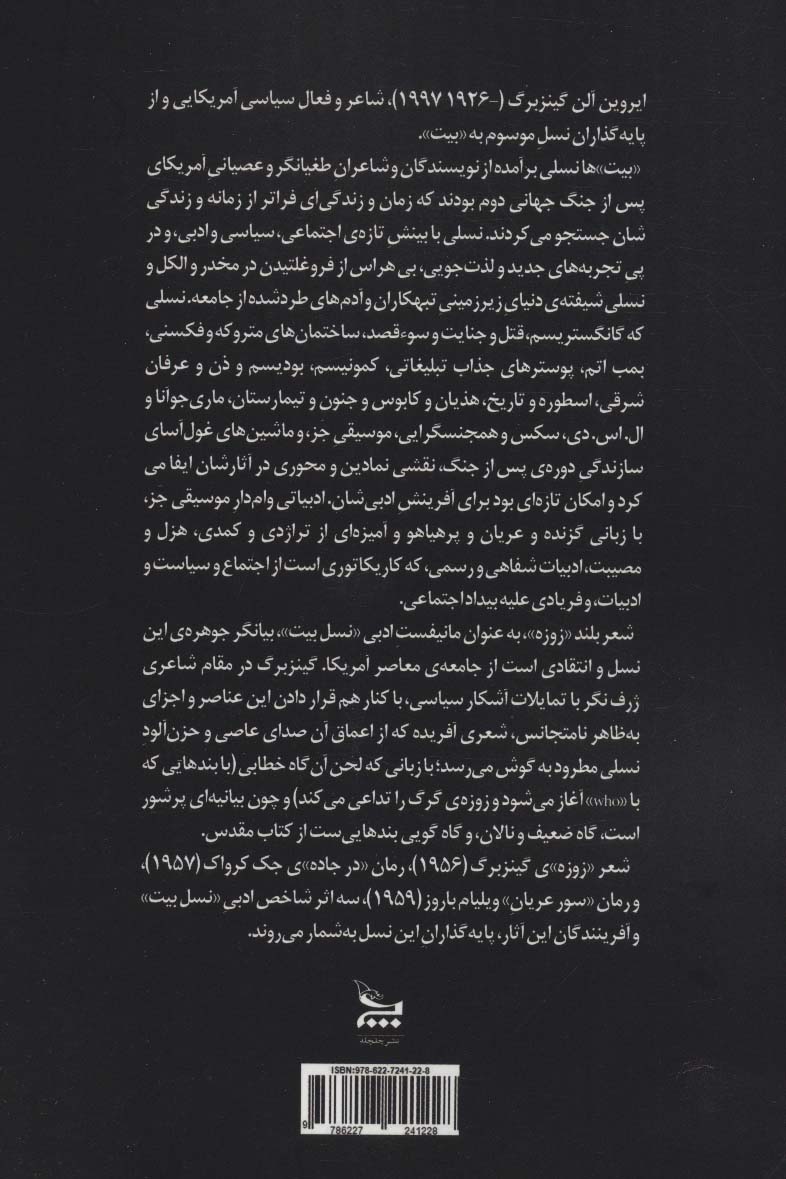 ایروین آلن گینزبرگ (-۱۹۲۶ ۱۹۹۷)، شاعر و فعال سیاسی آمریکایی و از
پایه‌گذاران نسل موسوم به «بیت».
«بیت»ها نسلی برآمده از نویسندگان و شاعران طغیانگر و عصیانی آمریکای
پس از جنگ جهانی دوم بودند که زمان و زندگی‌ای فراتر از زمانه و زندگی
شان جستجو می‌کردند. نسلی با بینشِ تازه‌ی اجتماعی، سیاسی و ادبی، و در
پی تجربه‌های جدید و لذت‌جویی، بی هراس از فروغلتیدن در مخدر و الکل و
نسلی شیفته‌ی دنیای زیرزمینیِ تبهکاران و آدم‌های طردشده از جامعه. نسلی
که گانگستریسم، قتل و جنایت و سوءقصد، ساختمان‌های متروکه و فکسنی،
بمب اتم، پوسترهای جذاب تبلیغاتی، کمونیسم، بودیسم و ذن و عرفان
شرقی، اسطوره و تاریخ، هذیان و کابوس و جنون و تیمارستان، ماری‌جوآنا و
ال. اس. دی، سکس و همجنسگرایی، موسیقیِ جَز، و ماشین‌های غول‌آسای
سازندگیِ دوره‌ی پس از جنگ، نقشی نمادین و محوری در آثارشان ایفا می
کرد و امکان تازه‌ای بود برای آفرینشِ ادبی‌شان. ادبیاتی وام‌دارِ موسیقی جَز،
با زبانی گزنده و عریان و پرهیاهو و آمیزه‌ای از تراژدی و کمدی، هزل و
مصیبت، ادبیات شفاهی و رسمی، که کاریکاتوری است از اجتماع و سیاست و
ادبیات، و فریادی علیه بیداد اجتماعی.
شعر بلند «زوزه»، به عنوان مانیفستِ ادبی «نسل بیت»، بیانگر جوهره‌ی این
نسل و انتقادی است از جامعه‌ی معاصر آمریکا. گینزبرگ در مقام شاعری
ژرف نگر با تمایلات آشکار سیاسی، با کنار هم قرار دادن این عناصر و اجزای
به‌ظاهر نامتجانس، شعری آفریده که از اعماق آن صدای عاصی و حزن‌آلودِ
نسلی مطرود به گوش می‌رسد؛ با زبانی که لحن آن گاه خطابی (با بندهایی که
با «who» آغاز می‌شود و زوزه‌ی گرگ را تداعی می‌کند) و چون بیانیه‌ای پرشور
است، گاه ضعیف و نالان، و گاه گویی بندهایی‌ست از کتاب مقدس.
شعر «زوزه»ی گینزبرگ (۱۹۵۶)، رمان «در جاده»ی جک کرواک (۱۹۵۷)،
و رمان «سور عریانِ» ویلیام باروز (۱۹۵۹)، سه اثر شاخص ادبیِ «نسل بیت»
و آفرینندگان این آثار، پایه‌گذارانِ این نسل به‌شمار می‌روند.
نشر چلچله
ISBN:978-622-7241-22-8
9 786227 241228